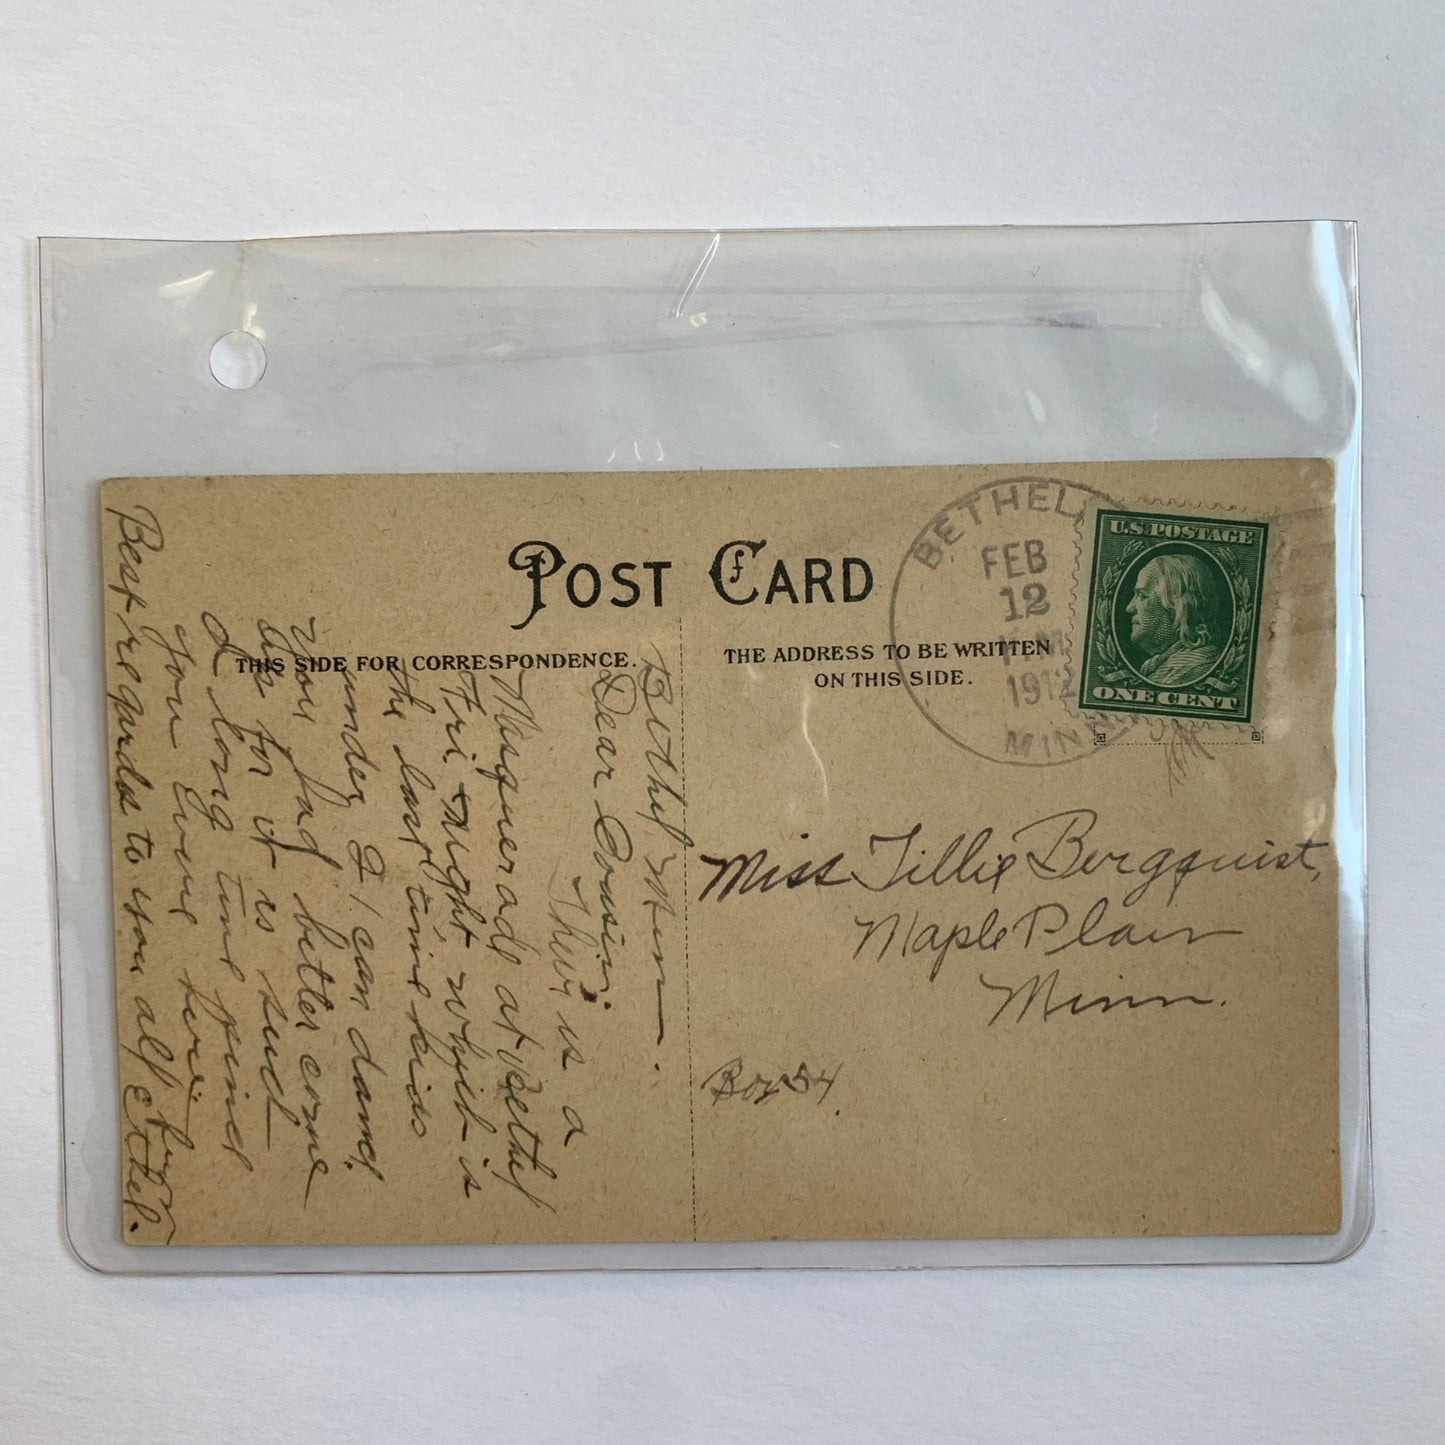 POST CARD
THIS SIDE FOR CORRESPONDENCE.
THE ADDRESS TO BE WRITTEN
ON THIS SIDE.
BETHEL
FEB
12
1912
MINN
U.S. POSTAGE
ONE CENT
Miss Tillie Bergquist,
Maple Plain
Minn.
Box 54.
Bethel Minn.
Dear Cousin:
Their is a
Masquerade at Bethel
Fri. Night, which is
the last time
under I can dance
You had better come
up for it is such
a long time since
you were here
Best regards to you all Ethel.